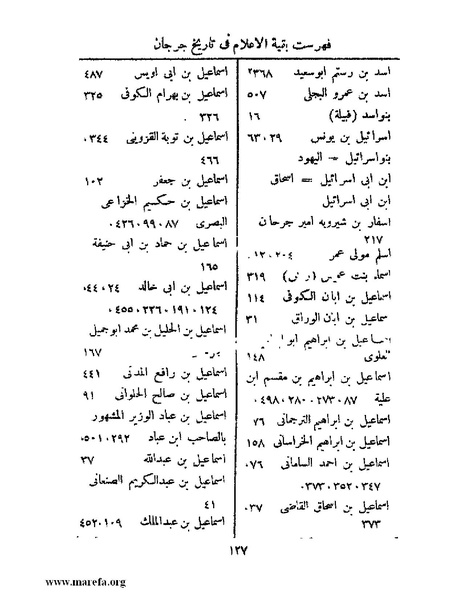 فهرست بقية الاعلام فى تاريخ جرجان
اسد بن رستم ابوسعيد ٢٣٦٨
اسد بن عمرو البجلى ٥٠٧
بنواسد (قبيلة) ١٦
اسرائيل بن يونس ٦٣٠٢٩
بنواسرائيل = اليهود
ابن ابى اسرائيل = اسحاق
ابن ابى اسرائيل
اسفار بن شيرويه امير جرجان
٢١٧
اسلم مولى عمر ١٢٠٢٠٤.
اسماء بنت عميس ٣١٩
اسماعيل بن ابان الكوفى ١١٤
سماعيل بن ابان الوراق ٣١
سماعيل بن ابراهيم
لعلوى ١٤٨
اسماعيل بن ابراهيم بن مقسم ابن
علية ٠٤٩٨٠٢٨٠٠٢٧٣٠٨٧
اسماعيل بن ابراهيم الترجمانى ٧٦
اسماعيل بن ابراهيم الخراسانى ١٥٨
اسماعيل بن احمد السامانى ٠٧٦
٠٣٧٣٠٣٥٢٠٣٤٧
اسماعيل بن اسحاق القاضى ٠٣٧
٣٧٣
اسماعيل بن ابى اويس ٤٨٧
اسماعيل بن بهرام الكوفى ٣٢٥
٣٢٦ .
اسماعيل بن توبة القزوينى ٠٣٤٤
٤٦٦
اسماعيل بن جعفر ١٠٢
اسماعيل بن حكيم الخزاعى
البصرى ٠٤٣٦٠٩٩٠٨٧
اسماعيل بن حماد بن ابى حنيفة
١٦٥
اسماعيل بن ابى خالد ٠٤٤٠٢٤
٠٤٥٥٠٢٣٦٠١٩١٠١٢٤
اسماعيل بن الخليل بن محمد ابوجميل
١٦٧
اسماعيل بن رافع المدنى ٤٤١
اسماعيل بن صالح الحلوانى ٩١
اسماعيل بن عباد الوزير المشهور
بالصاحب ابن عباد ٠٥٠١٠٢٩٢
اسماعيل بن عبدالله ٣٧
اسماعيل بن عبدالكريم الصنعانى
٤١
اسماعيل بن عبدالملك ٤٥٢٠١٠٩
١٢٧
www.marefa.org